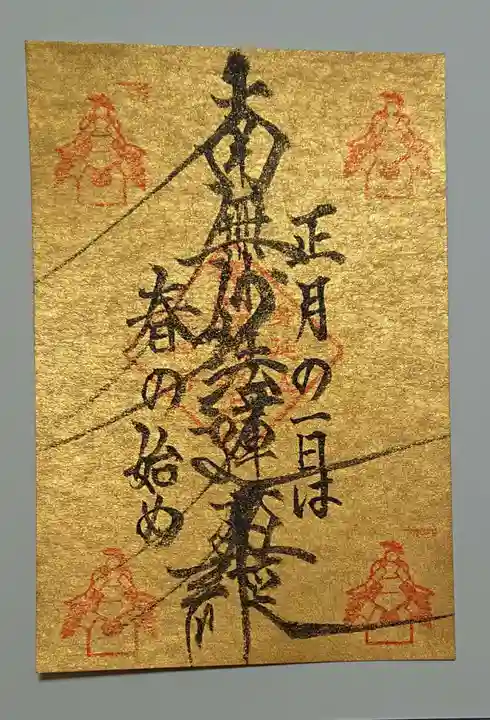 正月の一日は
南無妙法蓮華経
春の始め